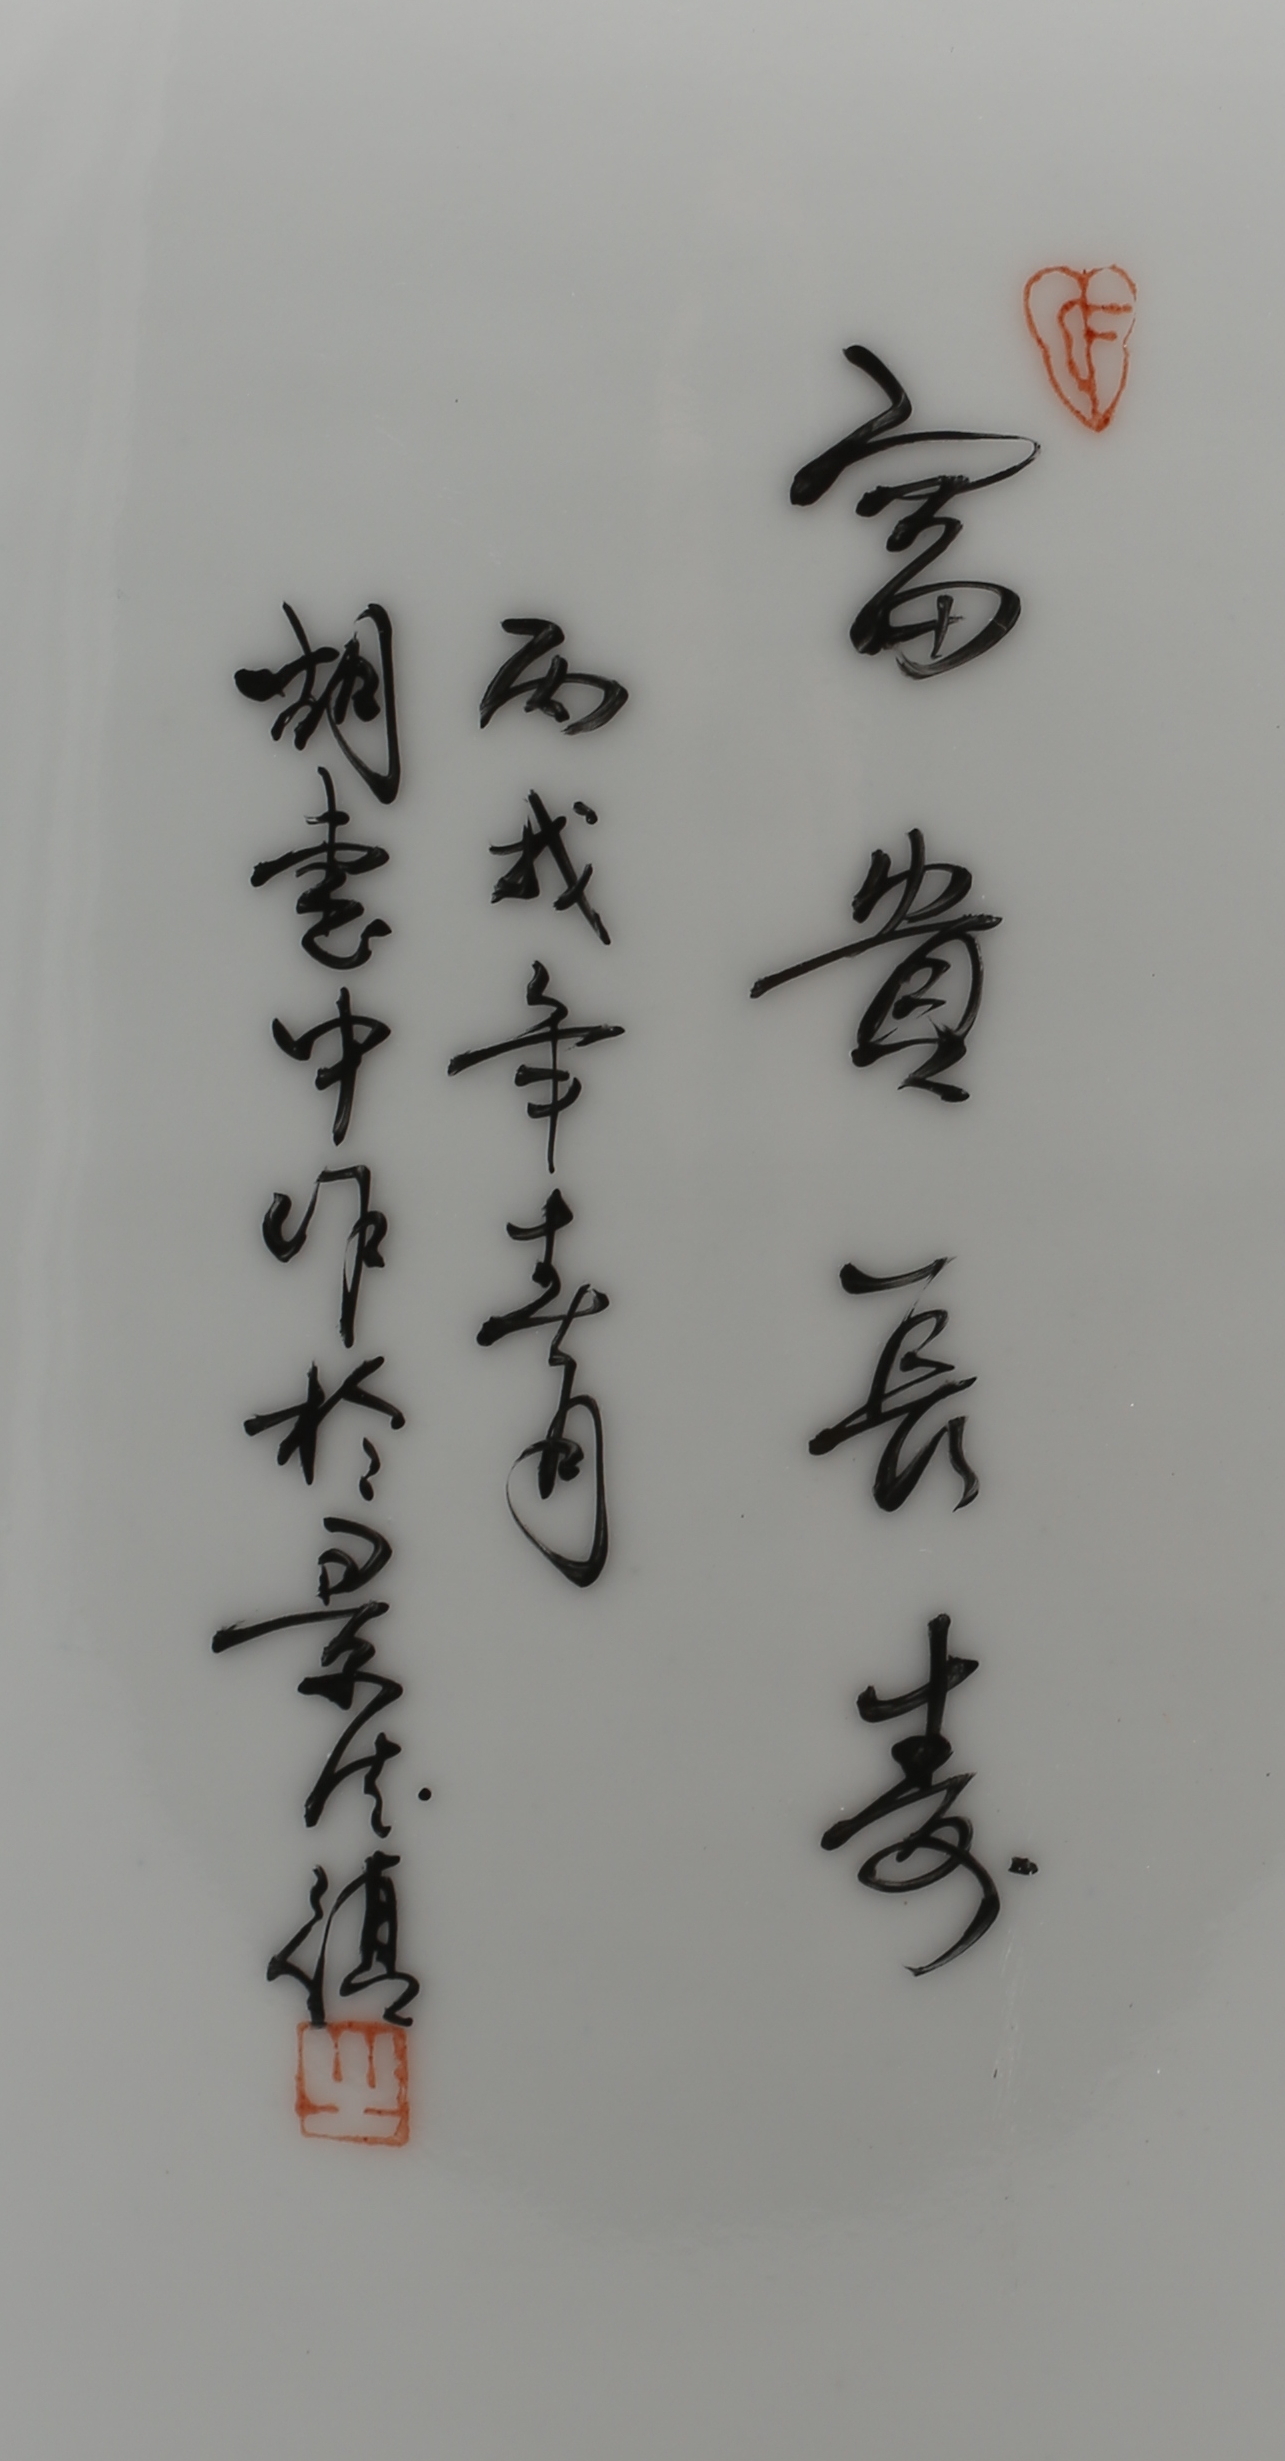 富貴長壽
丙戌年春月
胡憲中作於景德鎮